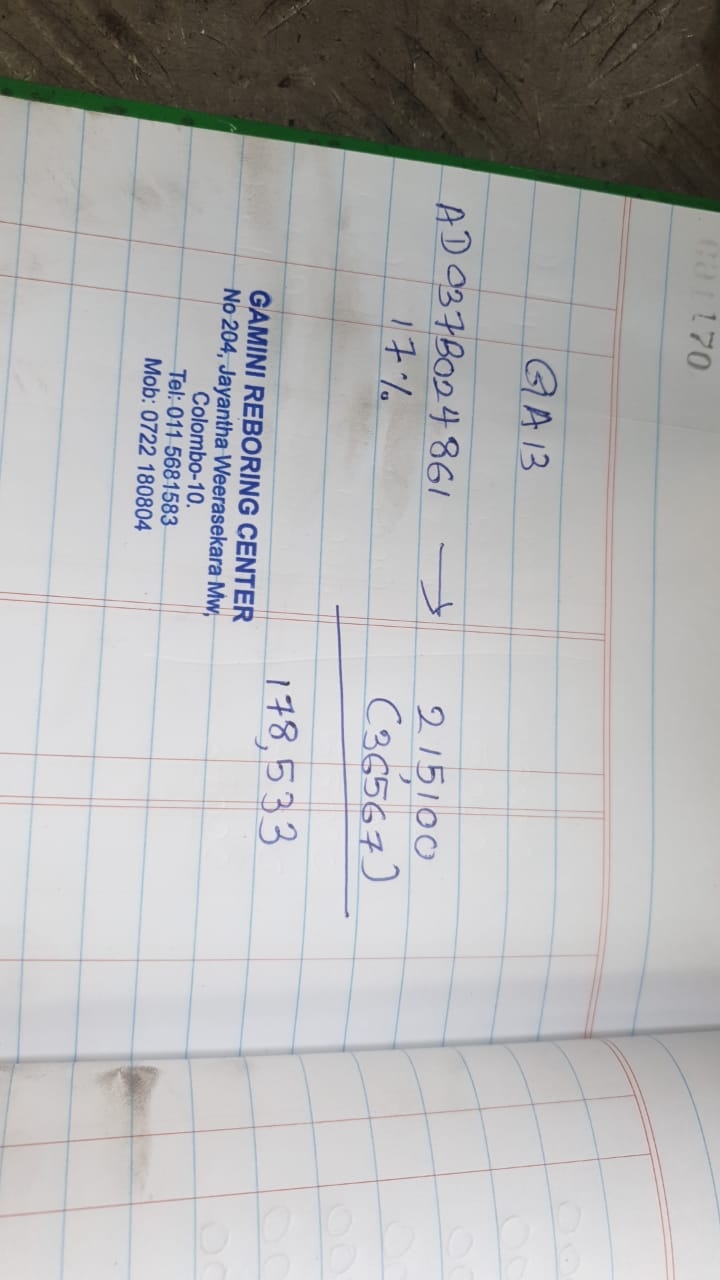 GA13
AD037B024861 → 215,100
17% (36567)
178,533
GAMINI REBORING CENTER
No 204, Jayantha Weerasekara Mw,
Colombo-10.
Tel: 011 5681583
Mob: 0722 180804